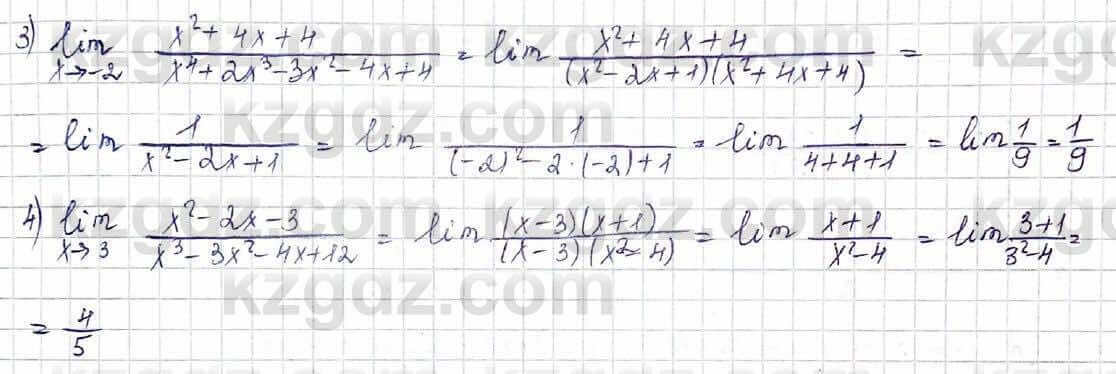 3) lim x→-2 (x² + 4x + 4)/(x⁴ + 2x³ - 3x² - 4x + 4) = lim (x² + 4x + 4)/((x² - 2x + 1)(x² + 4x + 4)) =
= lim 1/(x² - 2x + 1) = lim 1/((-2)² - 2·(-2) + 1) = lim 1/(4+4+1) = lim 1/9 = 1/9
4) lim x→3 (x² - 2x - 3)/(x³ - 3x² - 4x + 12) = lim ((x-3)(x+1))/((x-3)(x²-4)) = lim (x+1)/(x²-4) = lim (3+1)/(3²-4) =
= 4/5
kzgdz.com
kzgdz.com